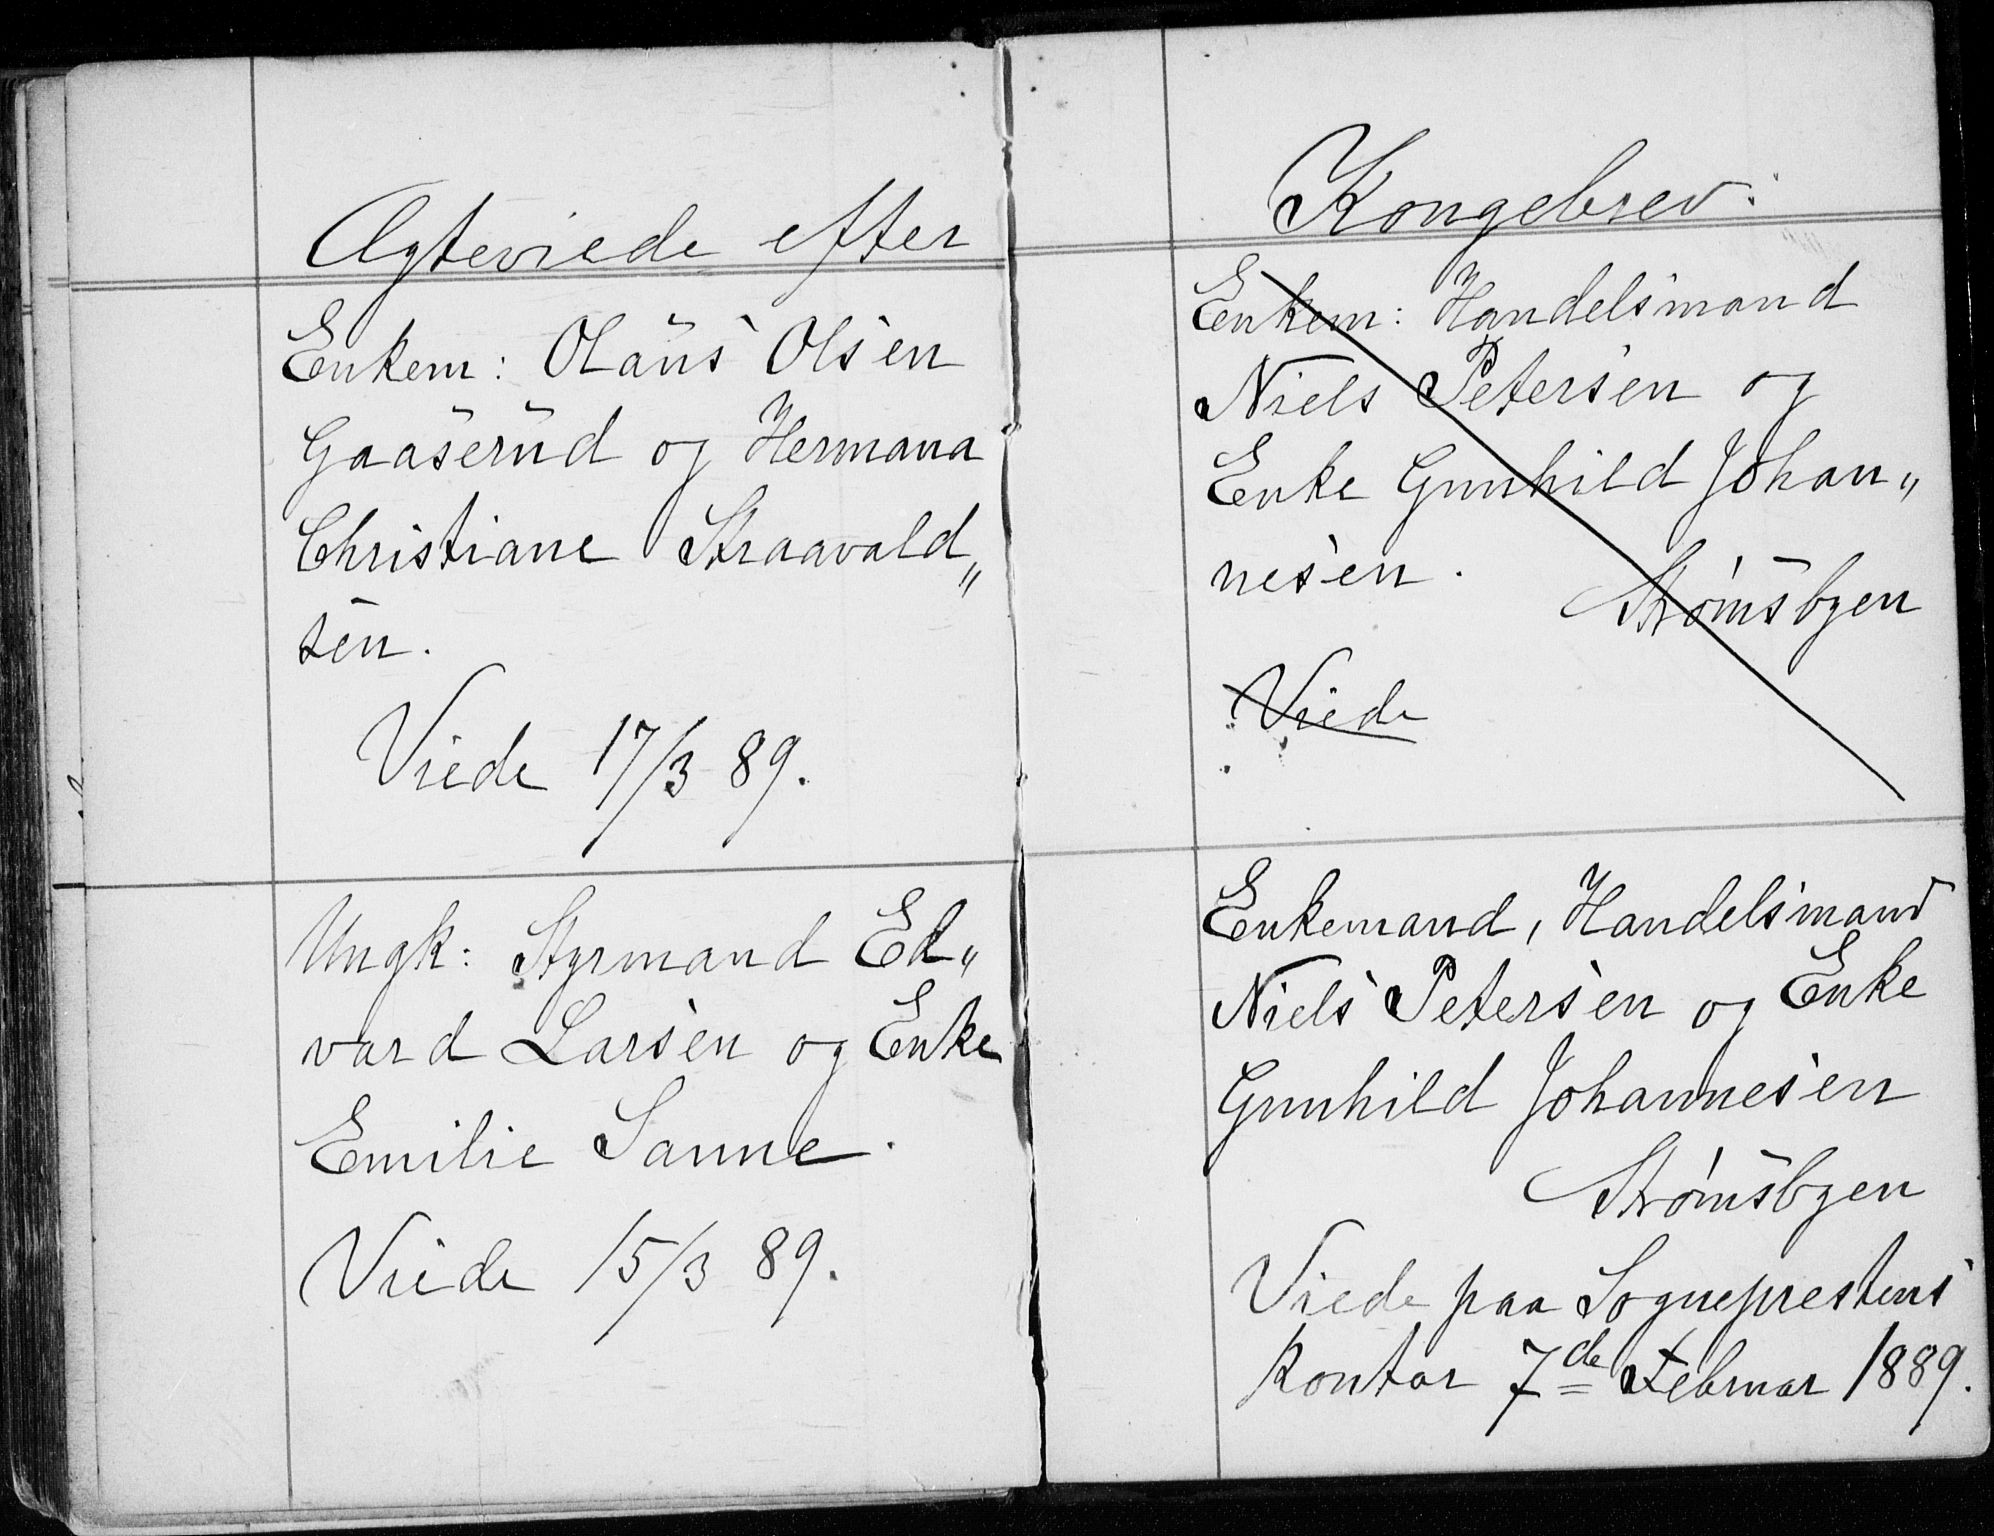 Ægteviede efter
Enkem: Olaus Olsen
Gaaserud og Hermana
Christiane Straavald„
sen.
Viede 17/3 89.
Ungk: Styrmand Ed„
vard Larsen og Enke
Emilie Sanne.
Viede 15/3 89.
Kongebrev:
Enkem: Handelsmand
Niels Petersen og
Enke Gunhild Johan„
nesen.
Strømsbyen
Viede
Enkemand, Handelsmand
Niels Petersen og Enke
Gunhild Johannesen
Strømsbyen
Viede paa Sogneprestens
Kontor 7de Februar 1889.